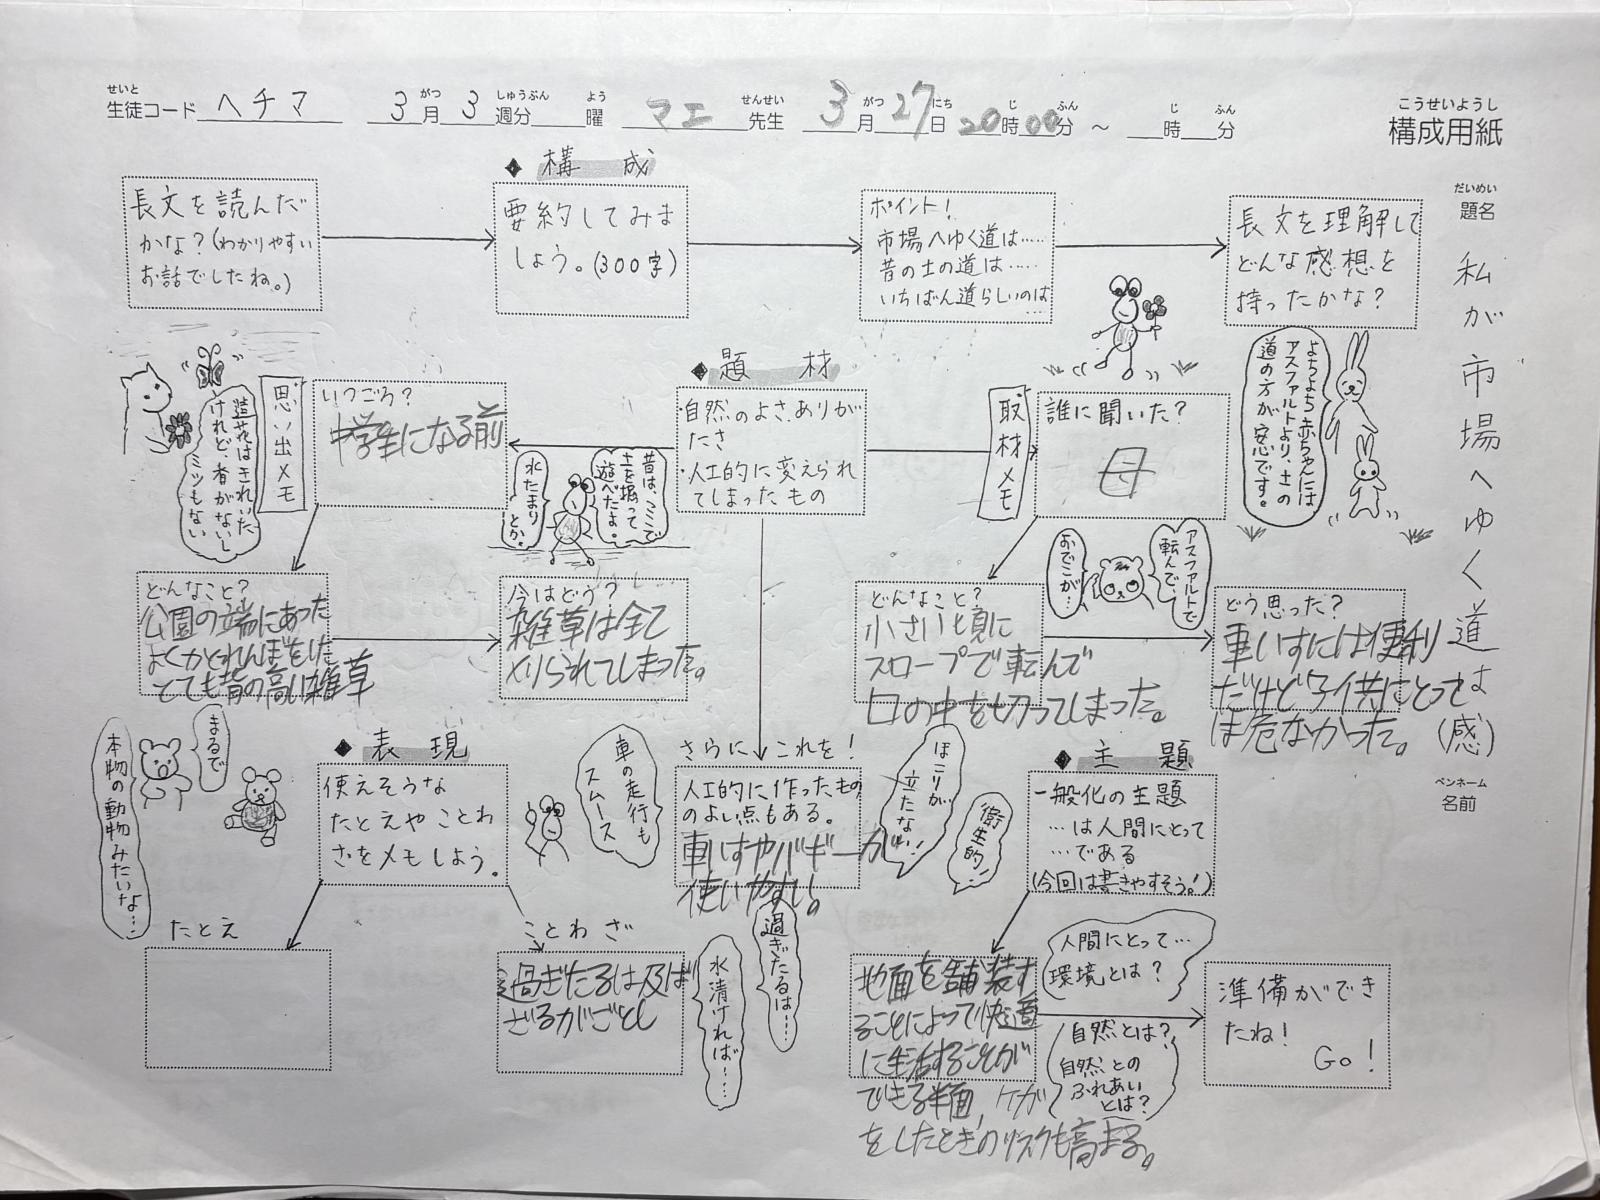 せいと
生徒コード ヘチマ 3月 3週分 曜 マエ 先生 3月27日 20時00分 ～ 時 分
がつ しゅうぶん よう せんせい がつ にち じ ふん じ ふん
こうせいようし
構成用紙
だいめい
題名
私が市場へゆく道は(感)
ペンネーム
名前
◆構成
長文を読んだ
かな?(わかりやすい
お話でしたね。)
要約してみま
しょう。(300字)
ポイント!
市場へゆく道は……
昔の土の道は……
いちばん道らしいのは…
長文を理解して
どんな感想を
持ったかな?
◆題材
・自然のよさ、ありが
たさ
・人工的に変えられ
てしまったもの
思い出メモ
いつごろ?
中学生になる前
どんなこと?
公園の端にあった
よくかくれんぼをした
とても背の高い雑草
今はどう?
雑草は全て
刈られてしまった。
造花はきれいだ
けれど、香がないし
ミツもない
昔は、ここで
土を掘って
遊べたよ。
水たまり
とか。
取材メモ
誰に聞いた?
母
どんなこと?
小さい頃に
スロープで転んで
口の中を切ってしまった。
どう思った?
車いすには便利
だけど子供にとって
は危なかった。
よちよち赤ちゃんには
アスファルトより、土の
道の方が安心です。
アスファルトで
転んで、
おでこが…
さらにこれを!
人工的に作ったもの
のよい点もある。
車いすやバギーが
使いやすい。
車の走行も
スムース
ほこりが
立たない!
衛生的!
◆表現
使えそうな
たとえやことわ
ざをメモしよう。
まるで
本物の動物みたいな…
たとえ
ことわざ
過ぎたるは及ば
ざるがごとし
過ぎたるは……
水清ければ……
◆主題
一般化の主題
…は人間にとって
…である
(今回は書きやすそう!)
地面を舗装す
ることによって快適
に生活することが
できる半面、ケガ
をしたときのリスクも高まる。
人間にとって…
環境とは?
自然とは?
自然との
ふれあい
とは?
準備ができ
たね!
Go!